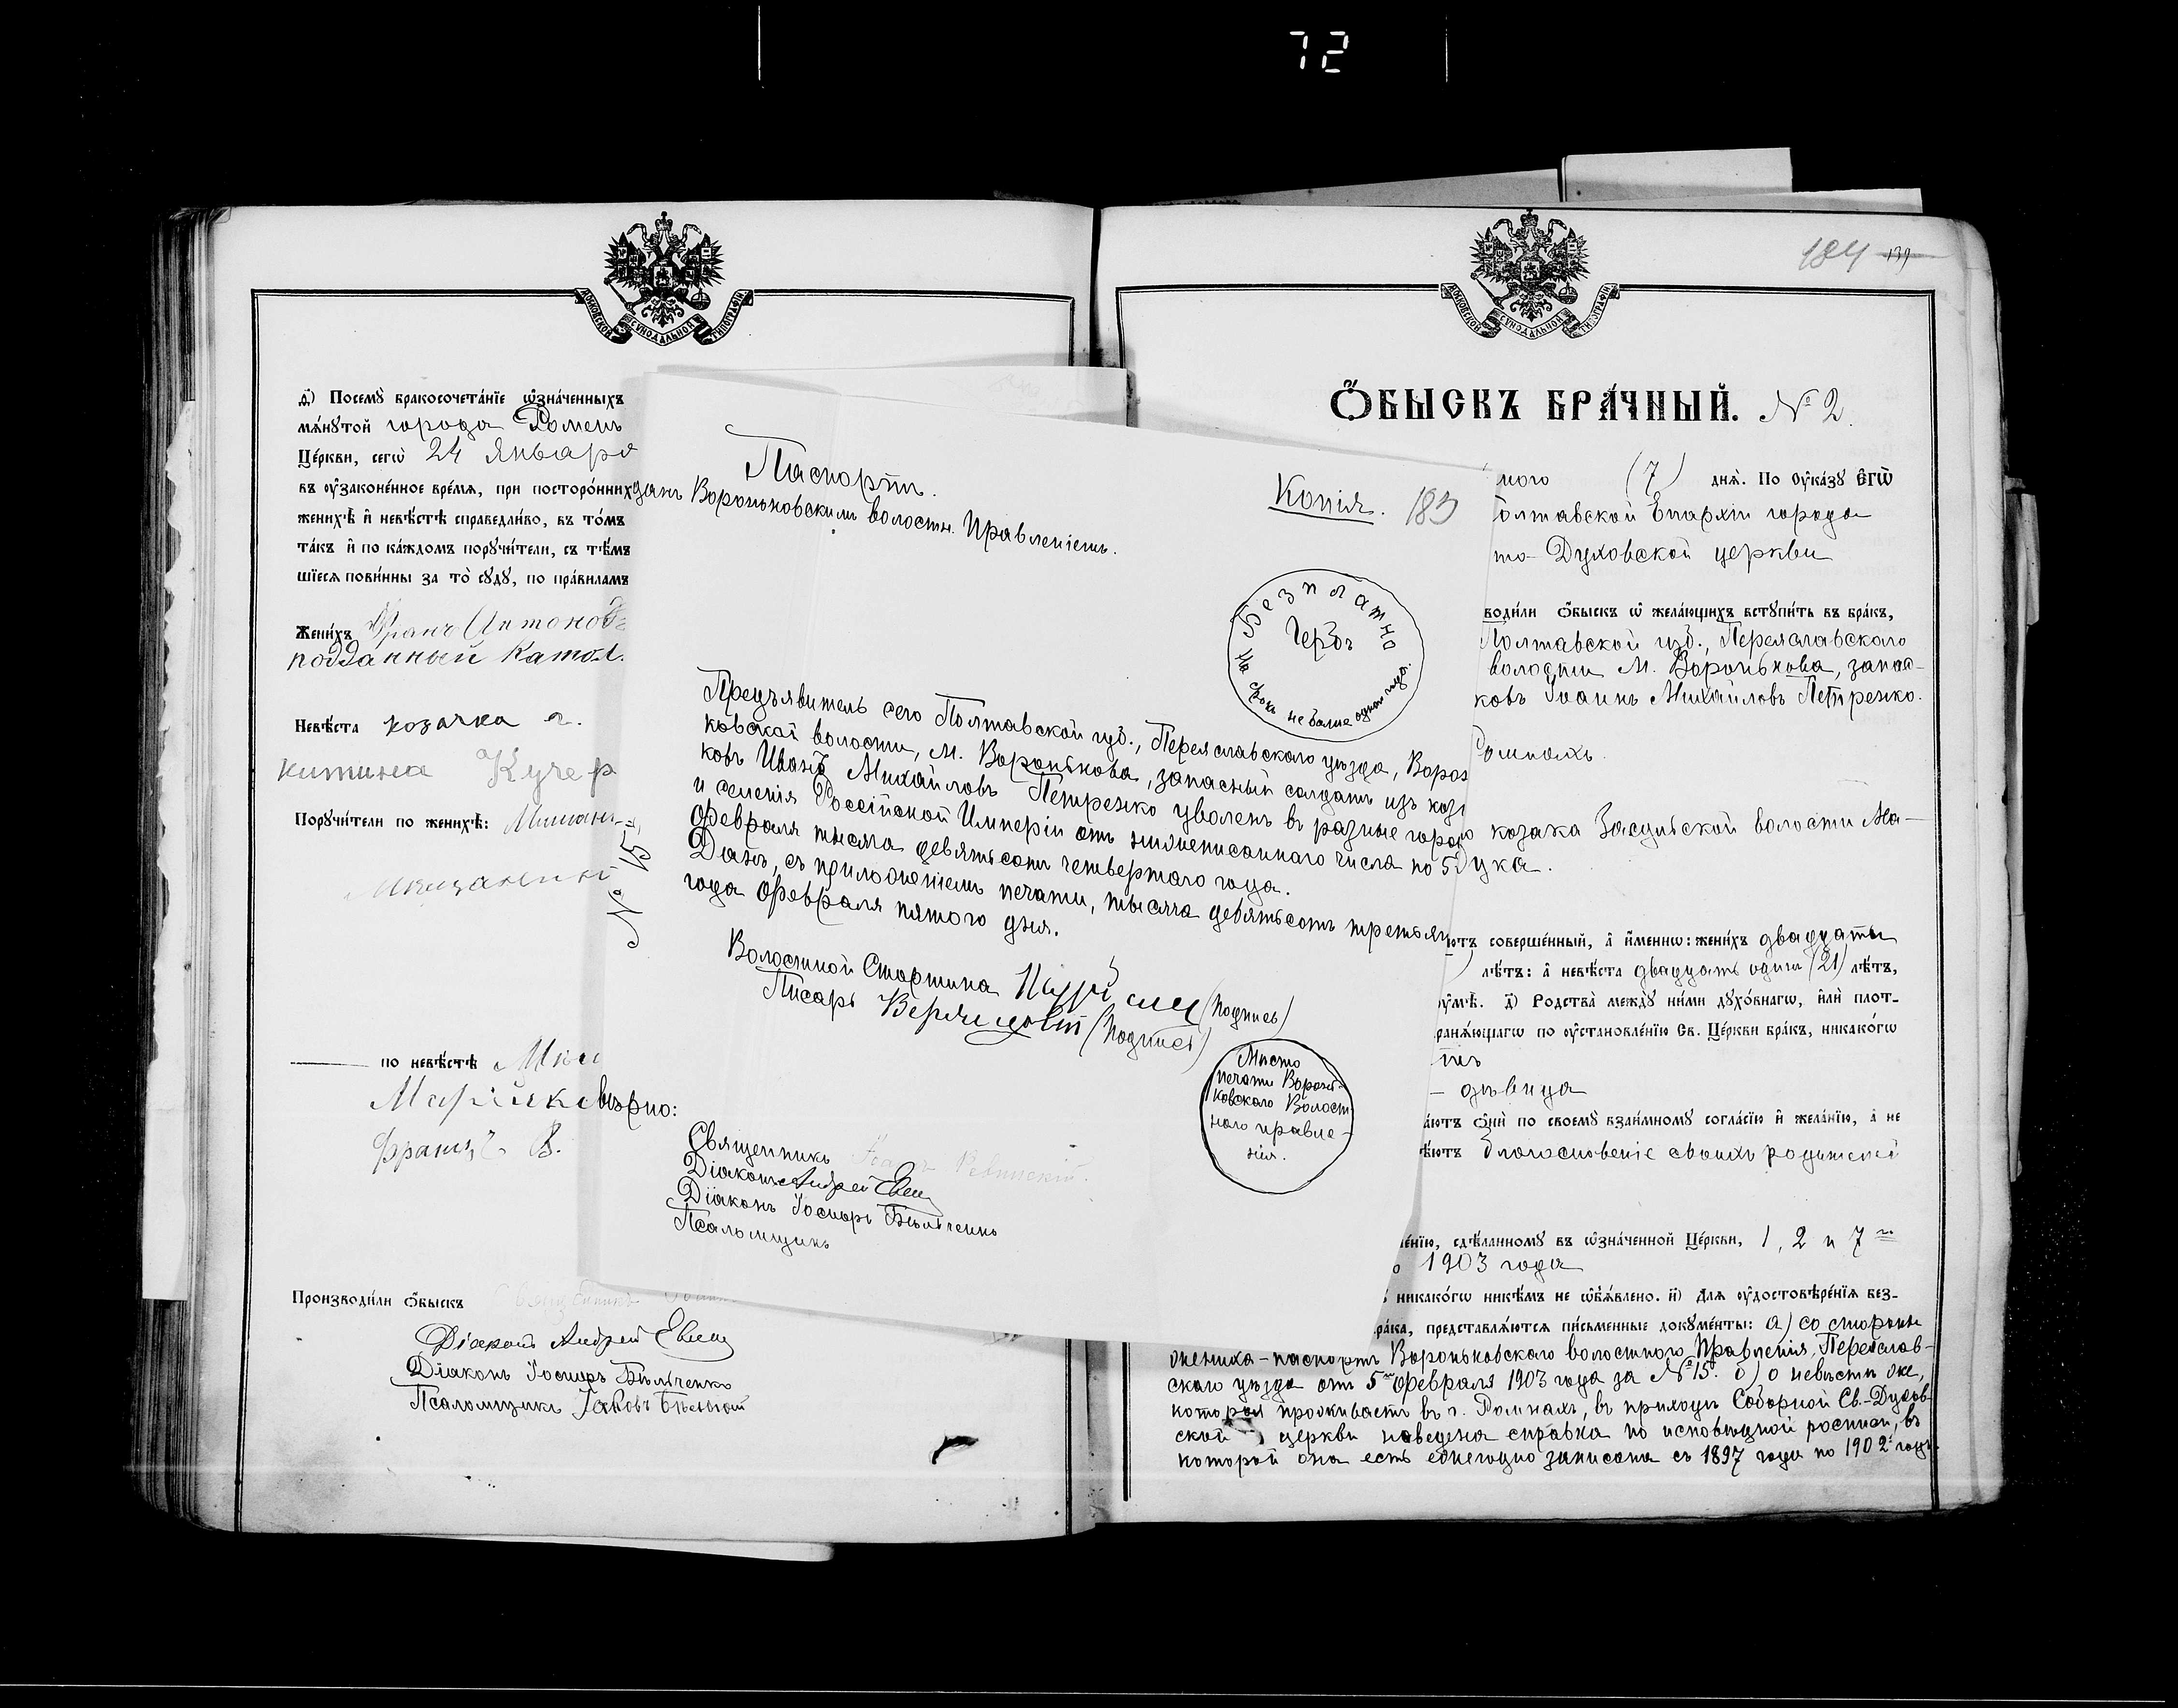 72
МОСКОВСКОЙ СѴНОДАЛЬНОЙ ТИПОГРАФІИ
д҃) Посемꙋ бракосочета́нїе ѡ҆зна́ченныхъ
мѧ́нꙋтой города Роменъ
Це́ркви, сегѡ̀ 24 Января
въ оу҆зако́ненное вре́мѧ, при посторо́ннихъ
женихѣ̀ и҆ невѣ́стѣ справедли́во, въ то́мъ
та́къ и҆ по ка́ждомъ порꙋчи́тели, съ тѣ́мъ
шїесѧ пови́нны за то̀ сꙋдꙋ̀, по пра́виламъ
Жени́хъ Францъ Антоно
подданный Катол.
Невѣ́ста козачка г.
китина Кучер
Порꙋчи́тели по женихѣ̀: Мищан
Мещанинъ
по невѣ́стѣ
Францъ В.
Производи́ли ѻ҆́быскъ
Діаконъ Андрей Евец
Діаконъ Іосифъ Бѣльченко
Псаломщикъ Іаковъ
Паспортъ.
данъ Вороньковскимъ волостн. Правленіемъ.
Копія. 183
Безплатно
Гербъ
На срокъ не болѣе одного года.
№ 15
Предъявитель сего Полтавской губ., Переяславскаго уѣзда, Ворон
ковской волости, м. Воронькова, запасный солдатъ изъ коза
ковъ Иванъ Михайловъ Петренко уволенъ въ разные город
и селенія Россійской Имперіи отъ нижеписаннаго числа по 5
Февраля тысяча девятьсотъ четвертаго года.
Данъ, съ приложеніемъ печати, тысяча девятьсотъ третьяго
года Февраля пятого дня.
Волостной Старшина (подпись)
Писарь (подпись)
Мѣсто
печати Воронь-
ковскаго Волост
ного правле-
нія.
Вѣрно:
Священникъ
Діаконъ Андрей Евец
Діаконъ Іосифъ Бѣльченко
Псаломщикъ
184 139
МОСКОВСКОЙ СѴНОДАЛЬНОЙ ТИПОГРАФІИ
Ѻ҆БЫСКЪ БРА́ЧНЫЙ. № 2.
(7) днѧ̀. По оу҆ка́зꙋ Е҆гѡ̀
олтавской Епархіи города
то-Духовской церкви
води́ли ѻ҆́быскъ ѡ҆ жела́ющихъ встꙋпи́ть въ бра́къ,
Полтавской губ., Переяславскаго
волости м. Воронькова, запас-
ковъ Іоаннъ Михайловъ Петренко.
Ромнахъ.
козака Засульской волости Ма-
ука.
ютъ соверше́нный, а҆ и҆́меннѡ: жени́хъ двадцать
лѣ́тъ: а҆ невѣ́ста двадцать одинъ (21) лѣ́тъ,
оу҆мѣ̀. д҃) Родства̀ междꙋ̀ ни́ми дꙋхо́внагѡ, и҆лѝ плот-
ранѧ́ющагѡ по оу҆становле́нїю Св. Це́ркви бра́къ, никако́гѡ
— дѣвица
а́ютъ ѻ҆нѝ по своемꙋ̀ взаи́мномꙋ согла́сїю и҆ жела́нїю, а҆ не
ѣ́ютъ благословеніе своихъ родителей
ле́нїю, сдѣ́ланномꙋ въ ѡ҆зна́ченной Це́ркви, 1, 2 и 7
1903 года
никако́гѡ никѣ́мъ не ѡ҆б̾ѧ́влено. и҃) Длѧ оу҆достовѣре́нїѧ без-
бра́ка, представлѧ́ютсѧ пи́сьменные докꙋме́нты: а) со стороны
жениха – паспортъ Вороньковскаго волостного Правленія, Переяслав-
скаго уѣзда отъ 5 Февраля 1903 года за № 15. б) о невѣстѣ же,
которая проживаетъ въ г. Ромнахъ, въ приходѣ Соборной Св.-Духов-
ской церкви наведена справка по исповѣдной росписи, въ
которой она есть ежегодно записана съ 1897 года по 1902 годъ.